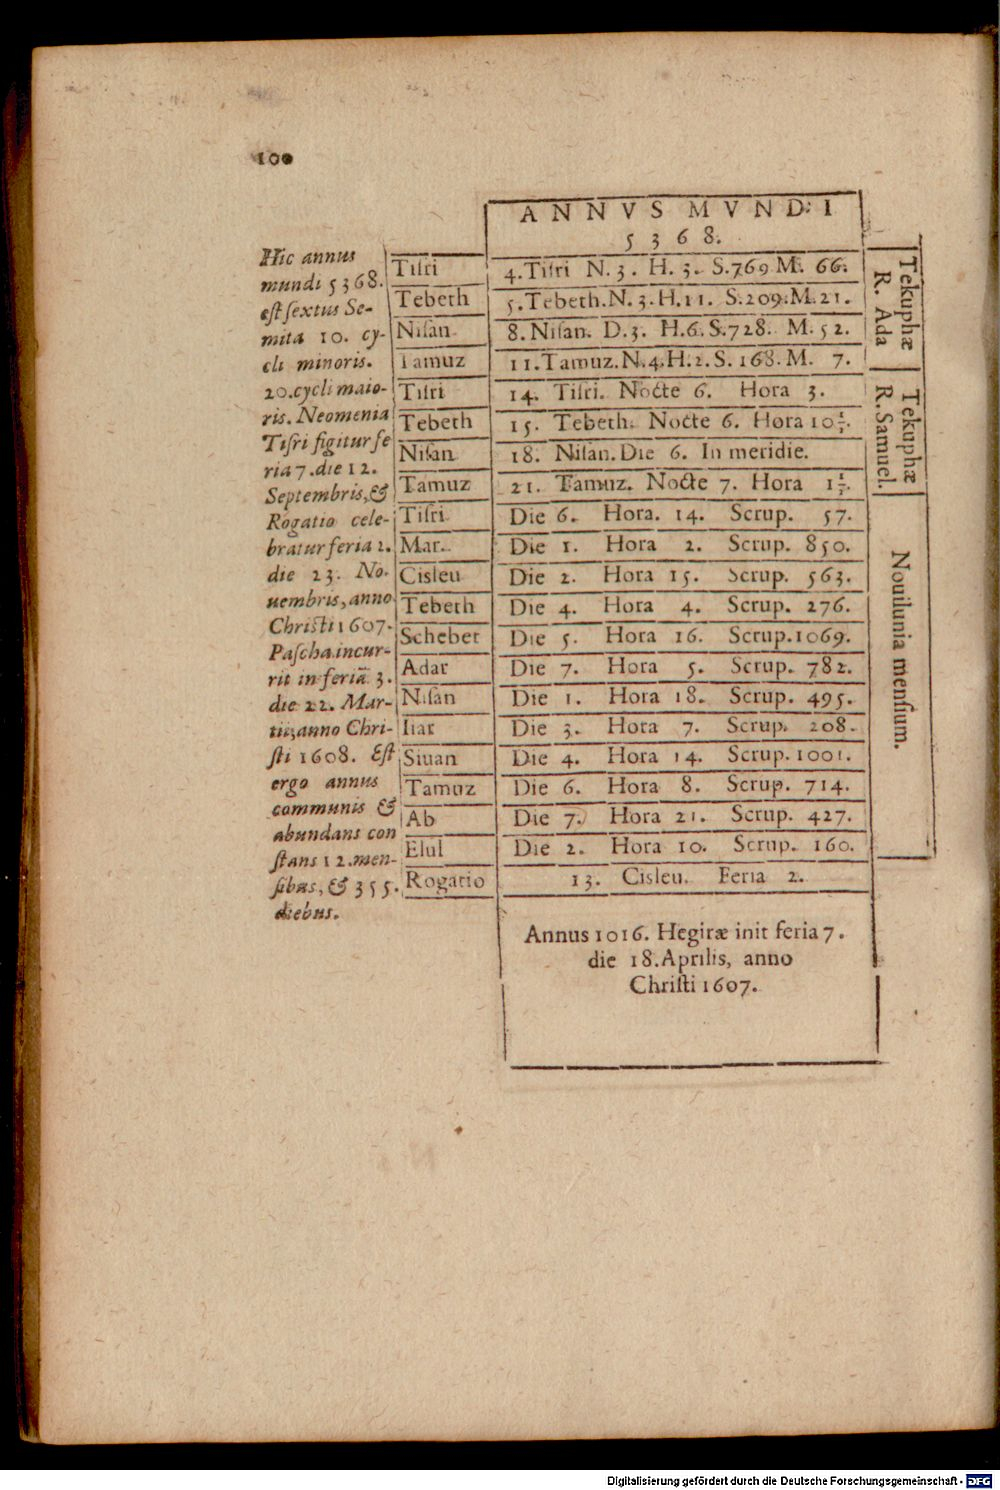 100
ANNVS MVNDI
5368.
Hic annus
mundi 5368.
est sextus Se-
mita 10. cy-
cli minoris.
20. cycli maio-
ris. Neomenia
Tisri figitur fe
ria 7. die 12.
Septembris, &
Rogatio cele-
bratur feria 2.
die 23. No-
uembris, anno
Christi 1607.
Pascha incur-
rit in feriā 3.
die 22. Mar-
tii, anno Chri-
sti 1608. Est
ergo annus
communis &
abundans con
stans 12. men-
sibus, & 355.
diebus.
Tisri 4. Tisri N. 3. H. 3. S. 769 M. 66.
Tebeth 5. Tebeth. N. 3. H. 11. S. 209. M. 21.
Nisan 8. Nisan. D. 3. H. 6. S. 728. M. 52.
Tamuz 11. Tamuz. N. 4. H. 2. S. 168. M. 7.
Tisri 14. Tisri. Nocte 6. Hora 3.
Tebeth 15. Tebeth. Nocte 6. Hora 10
Nisan 18. Nisan. Die 6. In meridie.
Tamuz 21. Tamuz. Nocte 7. Hora 1
Tisri Die 6. Hora. 14. Scrup. 57.
Mar. Die 1. Hora 2. Scrup. 850.
Cisleu Die 2. Hora 15. Scrup. 563.
Tebeth Die 4. Hora 4. Scrup. 276.
Schebet Die 5. Hora 16. Scrup. 1069.
Adar Die 7. Hora 5. Scrup. 782.
Nisan Die 1. Hora 18. Scrup. 495.
Iiar Die 3. Hora 7. Scrup. 208.
Siuan Die 4. Hora 14. Scrup. 1001.
Tamuz Die 6. Hora 8. Scrup. 714.
Ab Die 7. Hora 21. Scrup. 427.
Elul Die 2. Hora 10. Scrup. 160.
Rogatio 13. Cisleu. Feria 2.
Tekuphæ
R. Ada
Tekuphæ
R. Samuel.
Nouilunia mensium.
Annus 1016. Hegiræ init feria 7.
die 18. Aprilis, anno
Christi 1607.
Digitalisierung gefördert durch die Deutsche Forschungsgemeinschaft - DFG